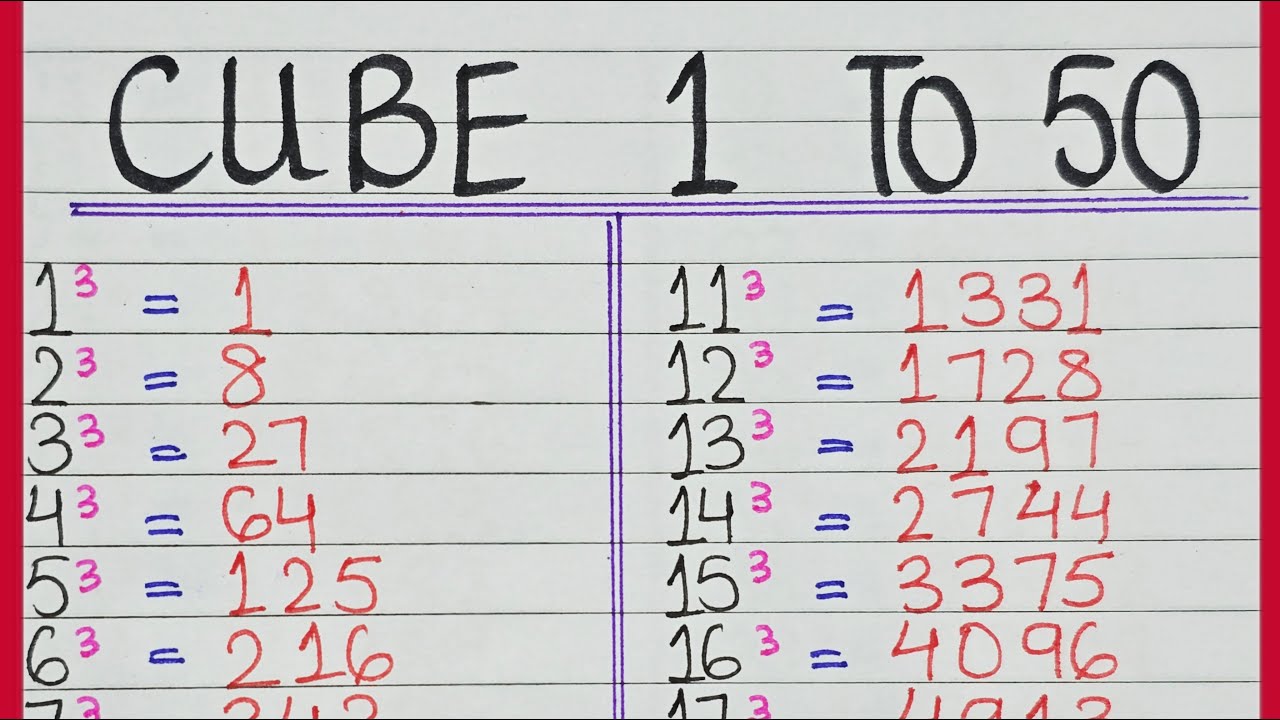 CUBE 1 TO 50
1³ = 1
2³ = 8
3³ = 27
4³ = 64
5³ = 125
6³ = 216
7³
11³ = 1331
12³ = 1728
13³ = 2197
14³ = 2744
15³ = 3375
16³ = 4096
17³